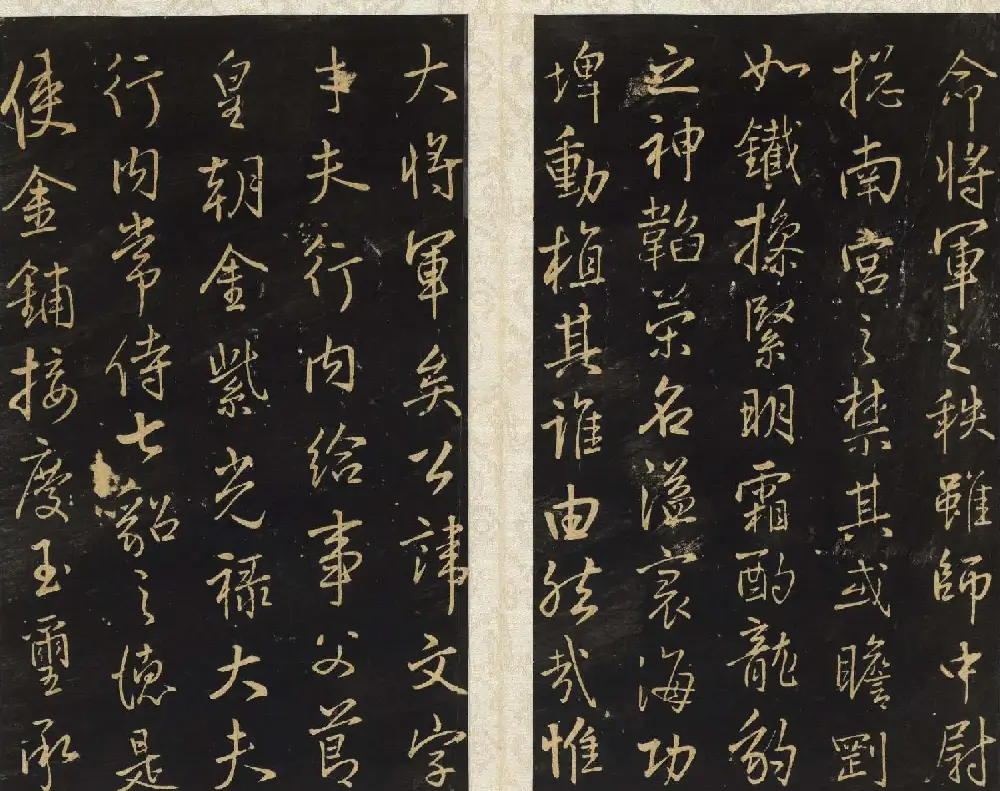 命將軍之秩雖師中尉
揔南宮之禁其或瞻剛
如鐵操緊明霜酌龍豹
之神韜榮名溢寰海功
埤動植其誰由然哉惟
大將軍矣公諱文字
才夫行內給事父節
皇朝金紫光祿大夫
行內常侍七谿之德是
使金鋪接慶玉璽承